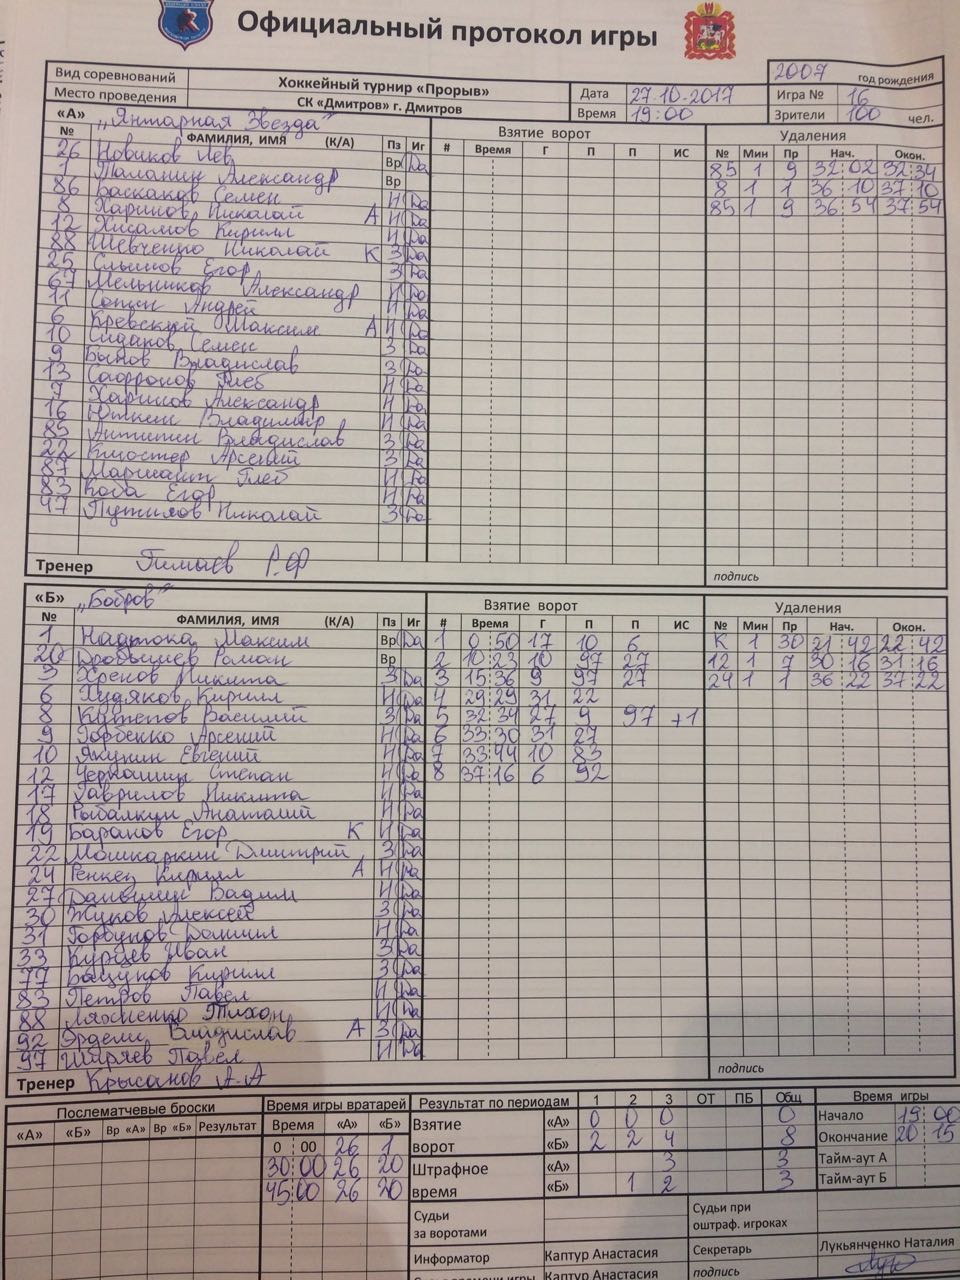 Официальный протокол игры
2007 год рождения
Вид соревнований Хоккейный турнир «Прорыв» Дата 27.10.2017 Игра № 16
Место проведения СК «Дмитров» г. Дмитров Время 19:00 Зрители 100 чел.
«А» „Янтарная Звезда" Взятие ворот Удаления
№ ФАМИЛИЯ, ИМЯ (К/А) Пз Иг # Время Г П П ИС № Мин Пр Нач. Окон.
26 Новиков Лев Вр Да 85 1 9 32:02 32:34
1 Таланин Александр Вр 8 1 1 36:10 37:10
86 Баскаков Семен Н Да 85 1 9 36:54 37:54
8 Харинов Николай А Н Да
12 Хисамов Кирилл Н Да
88 Шевченко Николай К З Да
25 Егор З Да
67 Мельников Александр Н Да
11 Андрей Н Да
6 Кревский Максим А Н Да
10 Сидаков Семен З Да
9 Быков Владислав З Да
13 Глеб Н Да
7 Харинов Александр Н Да
16 Владимир Н Да
85 Антипин Владислав З Да
22 Клюстер Арсений З Да
87 Глеб Н Да
83 Коба Егор Н Да
47 Путилов Николай З Да
Тренер Гимаев Р.Ф
подпись
«Б» „Бобров" Взятие ворот Удаления
№ ФАМИЛИЯ, ИМЯ (К/А) Пз Иг # Время Г П П ИС № Мин Пр Нач. Окон.
1 Надтока Максим Вр Да 1 0:50 17 10 6 К 1 30 21:42 22:42
20 Дробышев Роман Вр 2 10:23 10 97 27 12 1 7 30:16 31:16
3 Хренов Никита З Да 3 15:36 9 97 27 24 1 1 36:22 37:22
6 Худяков Кирилл Н Да 4 29:29 31 22
8 Кутепов Василий З Да 5 32:34 27 9 97 +1
9 Горбенко Арсений Н Да 6 33:30 31 27
10 Якунин Евгений Н Да 7 33:44 10 83
12 Степан Н Да 8 37:16 6 92
17 Гаврилов Никита Н Да
18 Рыбалкин Анатолий Н Да
19 Баранов Егор К Н Да
22 Мошкаркин Дмитрий З Да
24 Ренкец Кирилл А Н Да
27 Вадим Н Да
30 Жуков Алексей З Да
31 Горбунов Даниил Н Да
33 Курцев Иван З Да
77 Бацунов Кирилл З Да
83 Петров Павел Н Да
88 Ляхненко Тихон Н Да
92 Эрдели Владислав А З Да
97 Ширяев Павел Н Да
Тренер Крысанов А.А
подпись
Послематчевые броски Время игры вратарей Результат по периодам 1 2 3 ОТ ПБ Общ Время игры
«А» «Б» Вр «А» Вр «Б» Результат Время «А» «Б» Взятие ворот «А» 0 0 0 0 Начало 19 00
0 00 26 1 «Б» 2 2 4 8 Окончание 20 15
30:00 26 20 Штрафное время «А» 3 3 Тайм-аут А
45:00 26 20 «Б» 1 2 3 Тайм-аут Б
Судьи за воротами Судьи при оштраф. игроках
Информатор Каптур Анастасия Секретарь Лукьянченко Наталия
Каптур Анастасия подпись